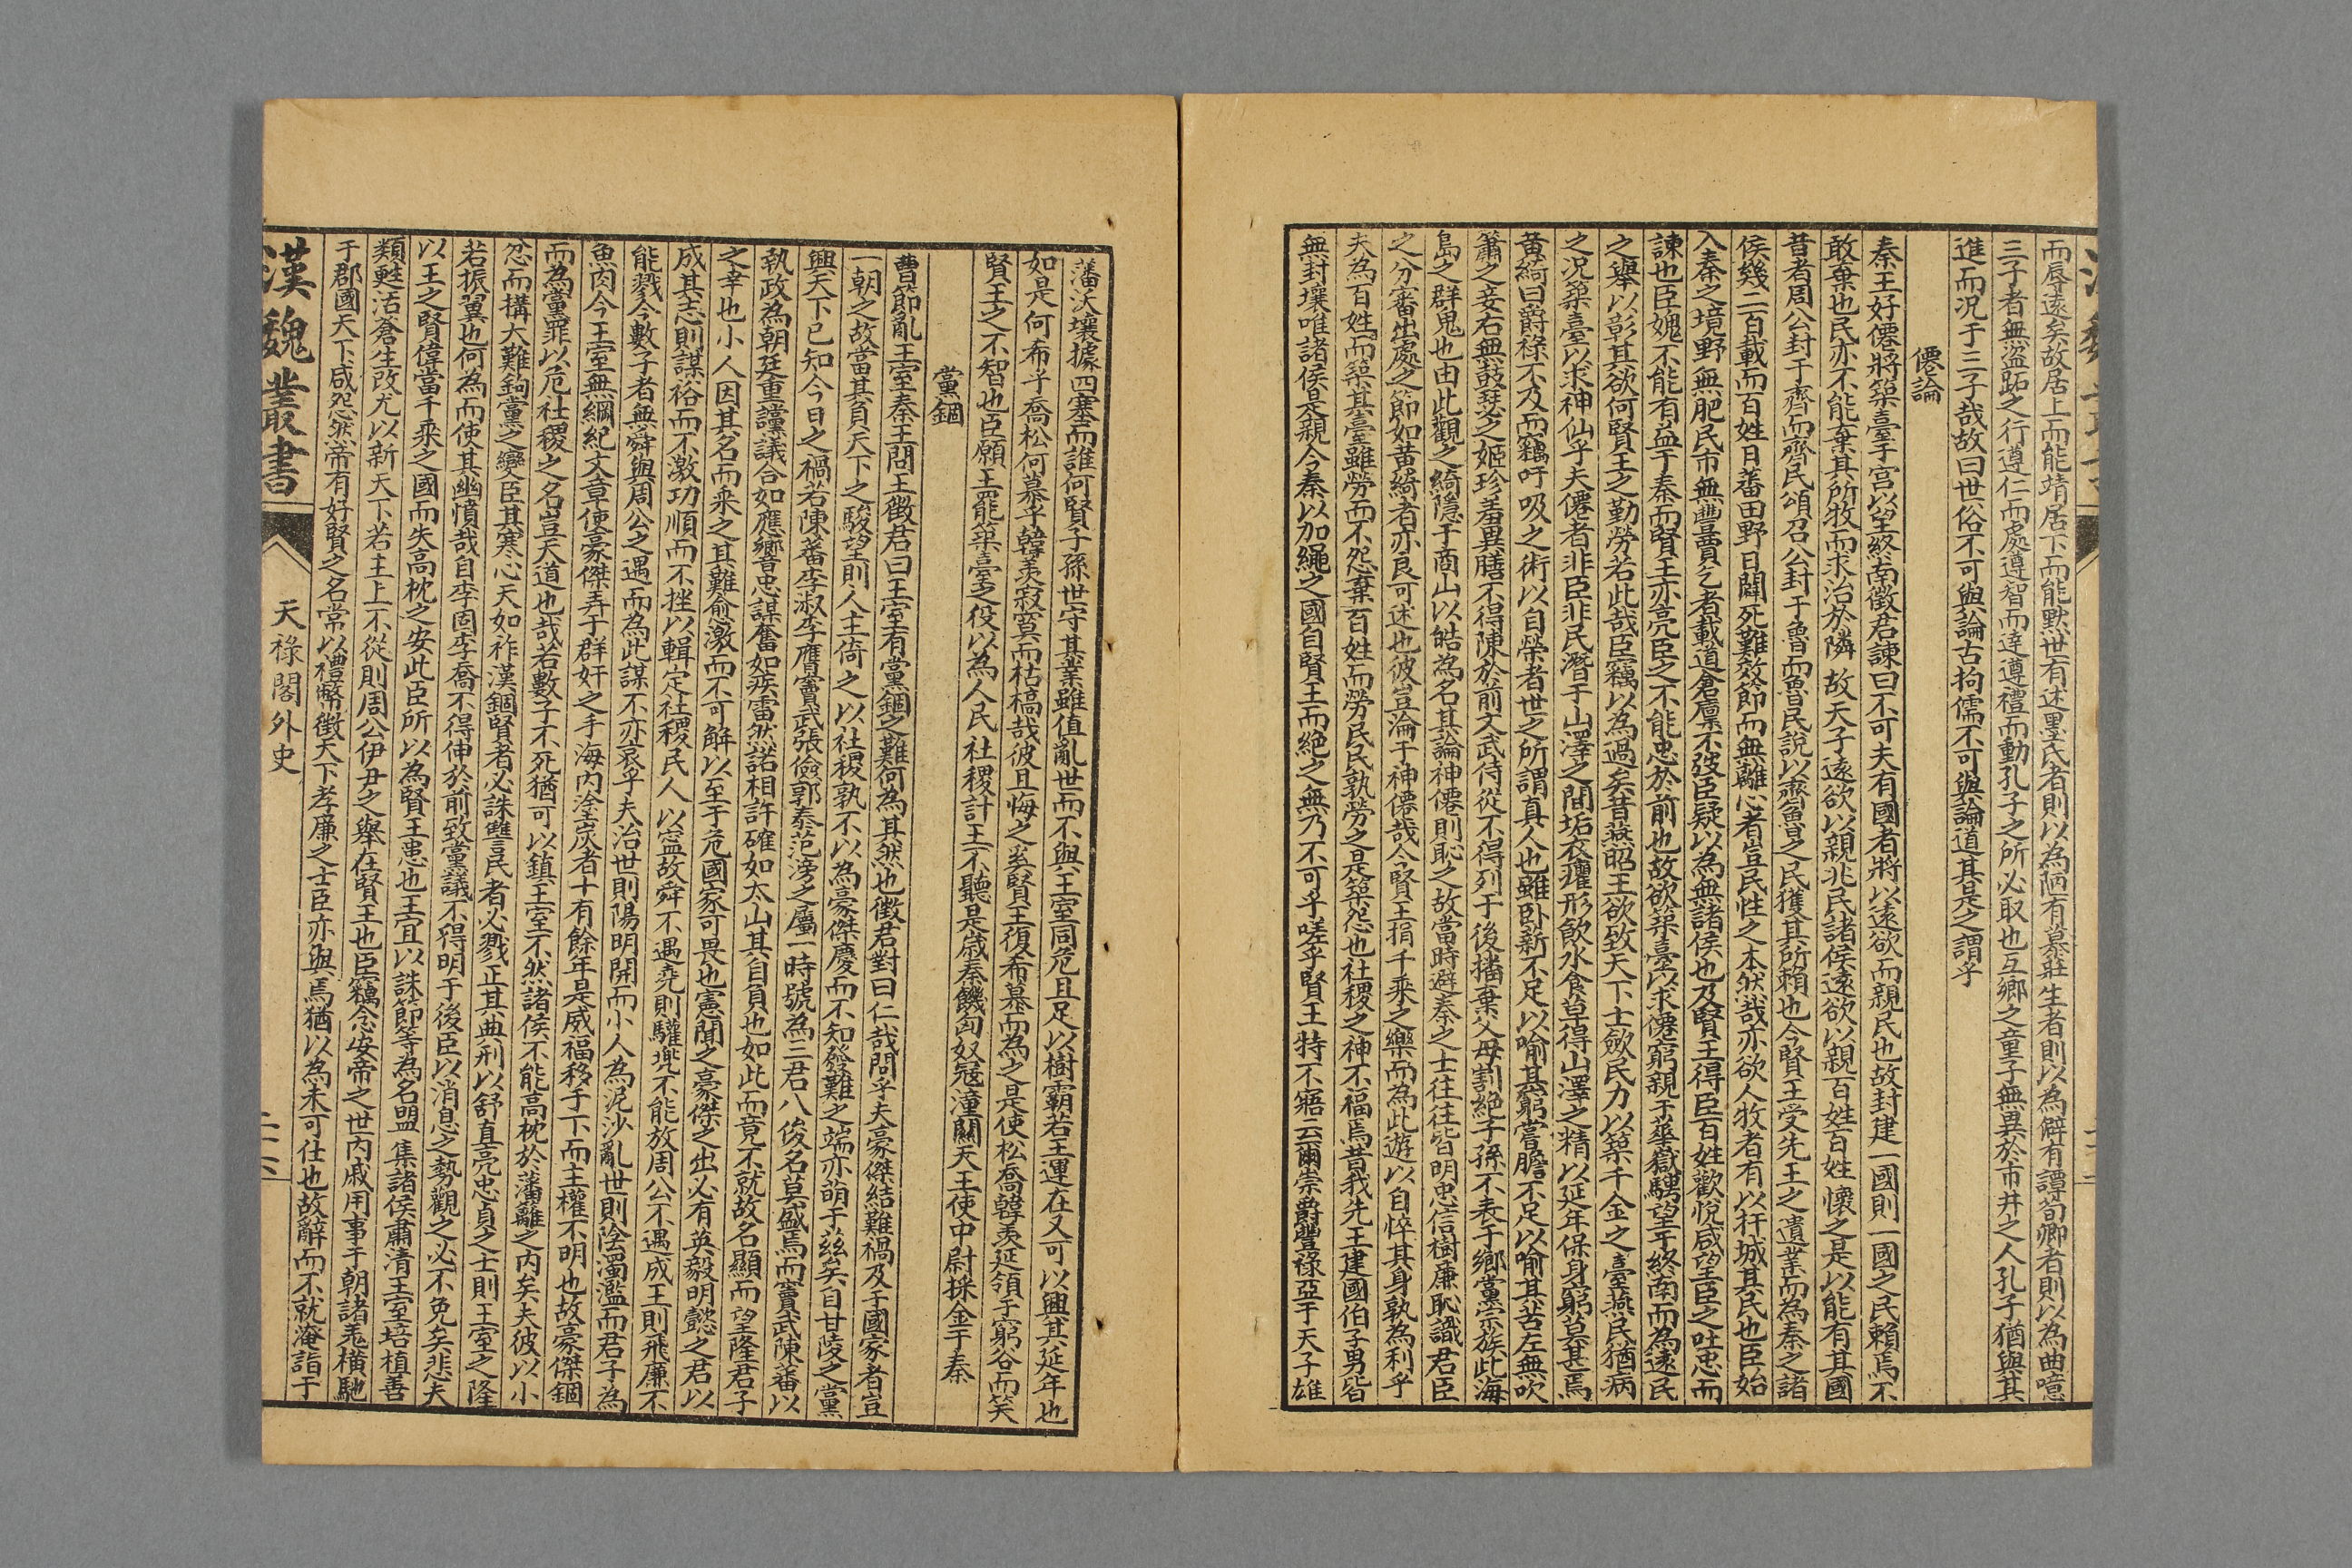 而辱遠矣故居上而能靖居下而能默世有述墨氏者則以為陋有慕莊生者則以為僻有譚荀卿者則以為曲噫
三子者無盜跖之行遵仁而處遵智而達遵禮而動孔子之所必取也互鄉之童子無異於市井之人孔子猶與其
進而况于三子哉故曰世俗不可與論古拘儒不可與論道其是之謂乎
僊論
秦王好僊將築臺于宮以望終南徵君諫曰不可夫有國者將以遠欲而親民也故封建一國則一國之民賴焉不
敢棄也民亦不能棄其所牧而求治於隣故天子遠欲以親兆民諸侯遠欲以親百姓百姓懷之是以能有其國
昔者周公封于齊而齊民頌召公封于魯而魯民說以齊魯之民獲其所賴也今賢王受先王之遺業而為秦之諸
侯幾二百載而百姓日蕃田野日闢死難效節而無離心者豈民性之本然哉亦欲人牧者有以扞城其民也臣始
入秦之境野無肥民市無豐賣乞者載道倉廩不發臣疑以為無諸侯也及賢王得臣百姓歡悅咸望臣之吐忠而
諫也臣媿不能有益于秦而賢王亦亮臣之不能忠於前也故欲築臺以求僊窮親于華嶽騁望于終南而為遠民
之舉以彰其欲何賢王之勤勞若此哉臣竊以為過矣昔燕昭王欲致天下士斂民力以築千金之臺燕民猶病
之况築臺以求神仙乎夫僊者非臣非民潛于山澤之間垢衣癯形飲水食草得山澤之精以延年保身窮莫甚焉
黃綺曰爵祿不及而竊吁吸之術以自榮者世之所謂真人也雖卧薪不足以喻其窮嘗膽不足以喻其苦左無吹
簫之妾右無鼓瑟之姬珍羞異膳不得陳於前文武侍從不得列于後播棄父母割絶子孫不表于鄉黨宗族此海
島之群鬼也由此觀之綺隱于商山以皓為名其論神僊則恥之故當時避秦之士往往皆明忠信樹廉恥識君臣
之分審出處之節如黃綺者亦良可述也彼豈淪于神僊哉今賢王捐千乘之樂而為此遊以自悴其身孰為利乎
夫為百姓而築其臺雖勞而不怨棄百姓而勞民民孰勞之是築怨也社稷之神不福焉昔我先王建國伯子男皆
無封壤唯諸侯是親今秦以加繩之國自賢王而絶之無乃不可乎嗟乎賢王特不寤云爾崇爵豐祿亞于天子雄
藩沃壤據四塞而誰何賢子孫世守其業雖值亂世而不與王室同危且足以樹霸若王運在又可以興其延年也
如是何希乎喬松何慕乎韓羡寂寞而枯槁哉彼且悔之奚賢王復希慕而為之是使松喬韓羡延領于窮谷而笑
賢王之不智也臣願王罷築臺之役以為人民社稷計王不聽是歲秦饑匈奴冦潼關天王使中尉採金于秦
黨錮
曹節亂王室秦王問王徵君曰王室有黨錮之難何為其然也徵君對曰仁哉問乎夫豪傑結難禍及于國家者豈
一朝之故當其負天下之駿望則人主倚之以社稷孰不以為豪傑慶而不知發難之端亦萌于兹矣自甘陵之黨
興天下已知今日之禍若陳蕃李淑李膺竇武張儉郭泰范滂之屬一時號為三君八俊名莫盛焉而竇武陳蕃以
執政為朝廷重讜議合如應響忠謀奮如疾雷然諾相許確如太山其自負也如此而竟不就故名顯而望隆君子
之幸也小人因其名而乘之其難愈激而不可解以至于危國家可畏也憲聞之豪傑之出必有英毅明懿之君以
成其志則謀裕而不激功順而不挫以輯定社稷民人以寧故舜不遇堯則驩兠不能放周公不遇成王則飛廉不
能戮今數子者無舜與周公之遇而為此謀不亦哀乎夫治世則陽明開而小人為泥沙亂世則陰濁濫而君子為
魚肉今王室無綱紀文章使豪傑弄于群奸之手海内塗炭者十有餘年是威福移于下而主權不明也故豪傑錮
而為黨罪以危社稷之名豈天道也哉若數子不死猶可以鎮王室不然諸侯不能高枕於藩籬之内矣夫彼以小
忿而搆大難鉤黨之變臣其寒心天如祚漢錮賢者必誅讐民者必戮正其典刑以舒直亮忠貞之士則王室之隆
若振翼也何為而使其幽憤哉自李固李喬不得伸於前致黨議不得明于後臣以消息之勢觀之必不免矣悲夫
以王之賢偉當千乘之國而失高枕之安此臣所以為賢王患也王宜以誅節等為名盟集諸侯肅清王室培植善
類甦活蒼生改尤以新天下若主上不從則周公伊尹之舉在賢王也臣竊念安帝之世内戚用事于朝諸羌横馳
于郡國天下咸怨然帝有好賢之名常以禮幣徵天下孝廉之士臣亦與焉猶以為未可仕也故辭而不就淹詣于
漢魏叢書
天祿閣外史